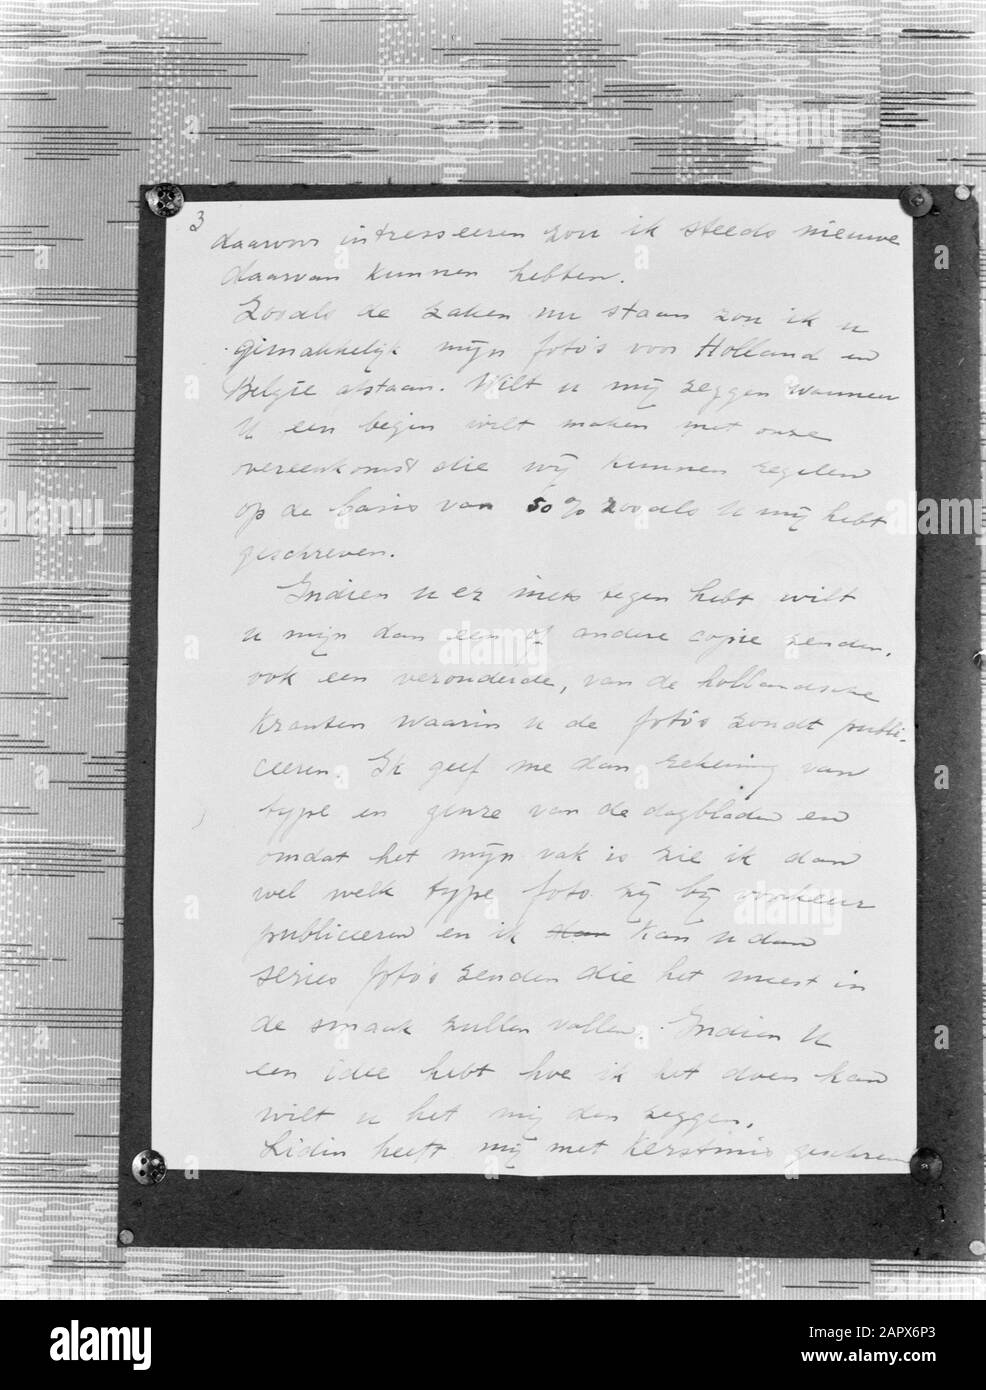 3
daarvoor intresseeren zou ik steeds nieuwe
daarvan kunnen hebben.
Zooals de zaken nu staan zou ik u
gemakkelijk mijn foto's voor Holland en
Belgie afstaan. Wilt u mij zeggen wanneer
U een begin wilt maken met onze
overeenkomst die wij kunnen regelen
op de basis van 50% zooals U mij hebt
geschreven.
Indien u er niets tegen hebt wilt
u mijn dan een of andere copie zenden,
ook een verouderde, van de hollandsche
kranten waarin u de foto's zoudt publi-
ceeren. Ik geef me dan rekening van
type en genre van de dagbladen en
omdat het mijn vak is zie ik dan
wel welk type foto zij bij voorkeur
publiceeren en ik dan kan u dan
series foto's zenden die het meest in
de smaak zullen vallen. Indien U
een idee hebt hoe ik het doen kan
wilt u het mij dan zeggen.
Lidin heeft mij met Kerstmis geschreven
1
alamy
a
alamy
Image ID: 2APX6P3
www.alamy.com